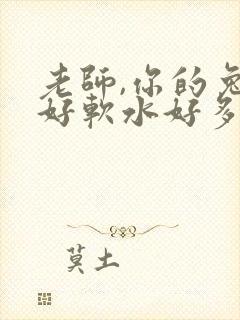 老師,你的兔
好軟水好多
莫土